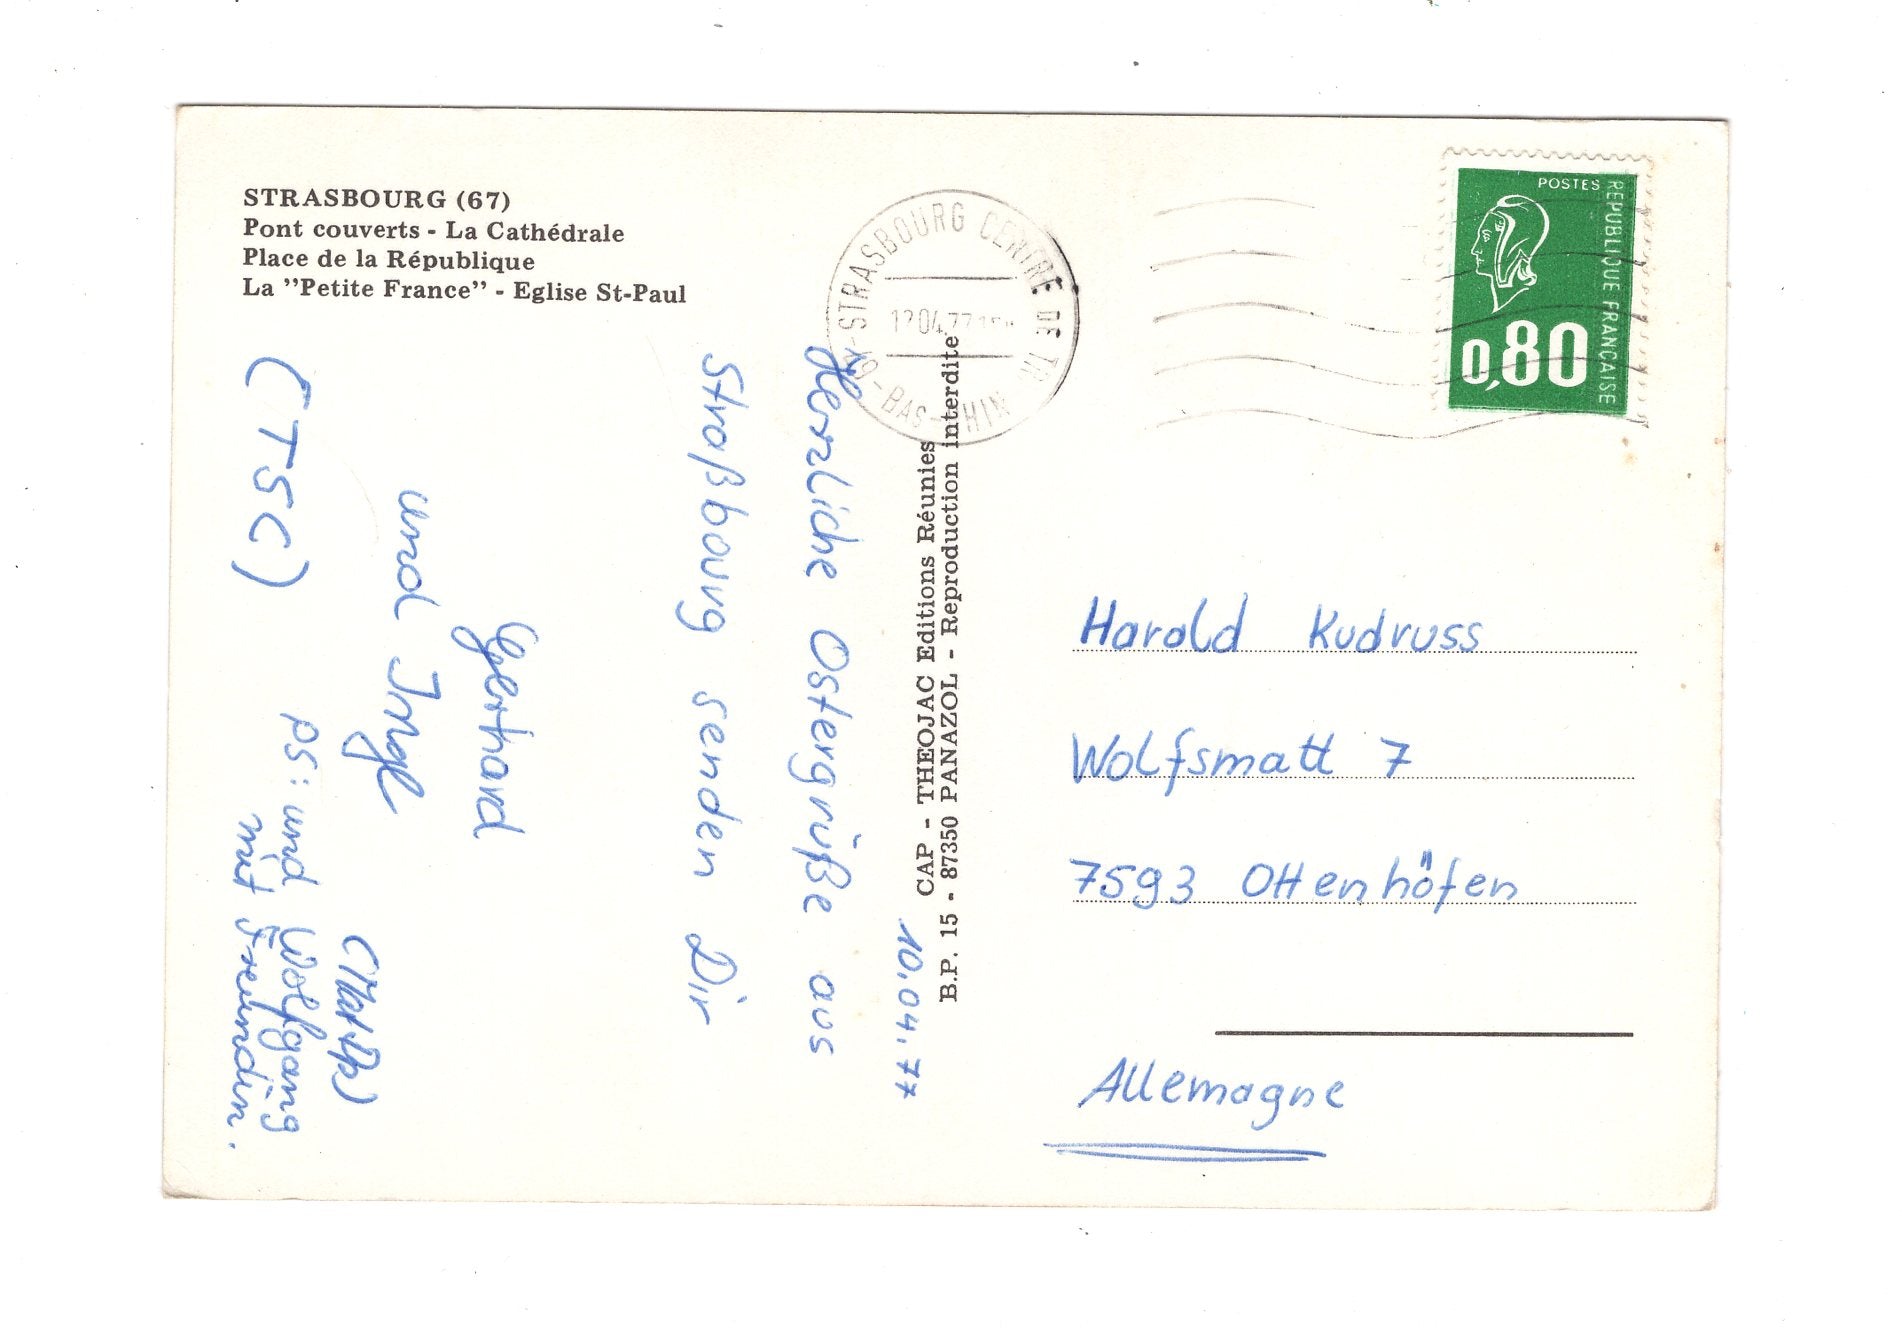 STRASBOURG (67)
Pont couverts - La Cathédrale
Place de la République
La ”Petite France” - Eglise St-Paul
10.04.77
Herzliche Ostergrüße aus
Straßbourg senden Dir
Gerhard
und Inge
(TSC)
ps: und Wolfgang
mit Freundin.
CAP - THEOJAC Editions Réunies
B.P. 15 - 87350 PANAZOL - Reproduction interdite
STRASBOURG CENTRE DE TRI
BAS-RHIN
POSTES
REPUBLIQUE FRANCAISE
0,80
Harald Kudruss
Wolfsmatt 7
7593 Ottenhöfen
Allemagne